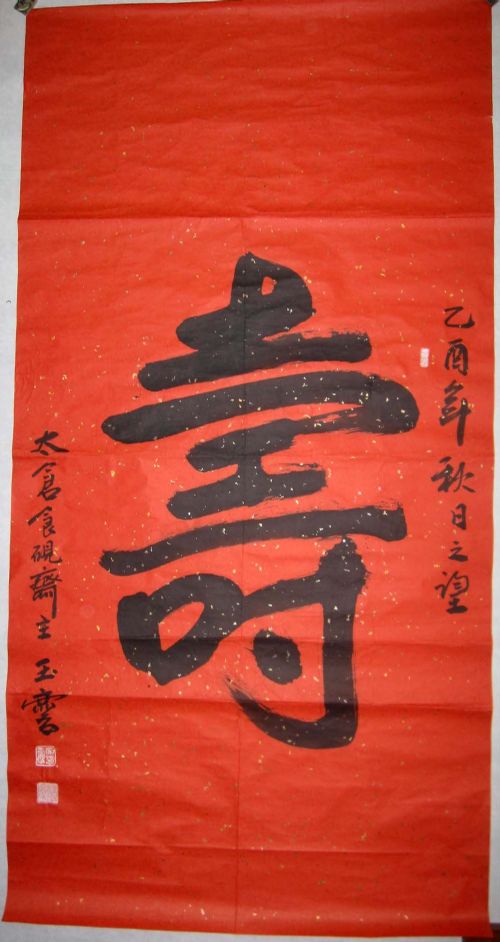 乙酉年秋日之望
壽
太倉食硯齋主玉雲